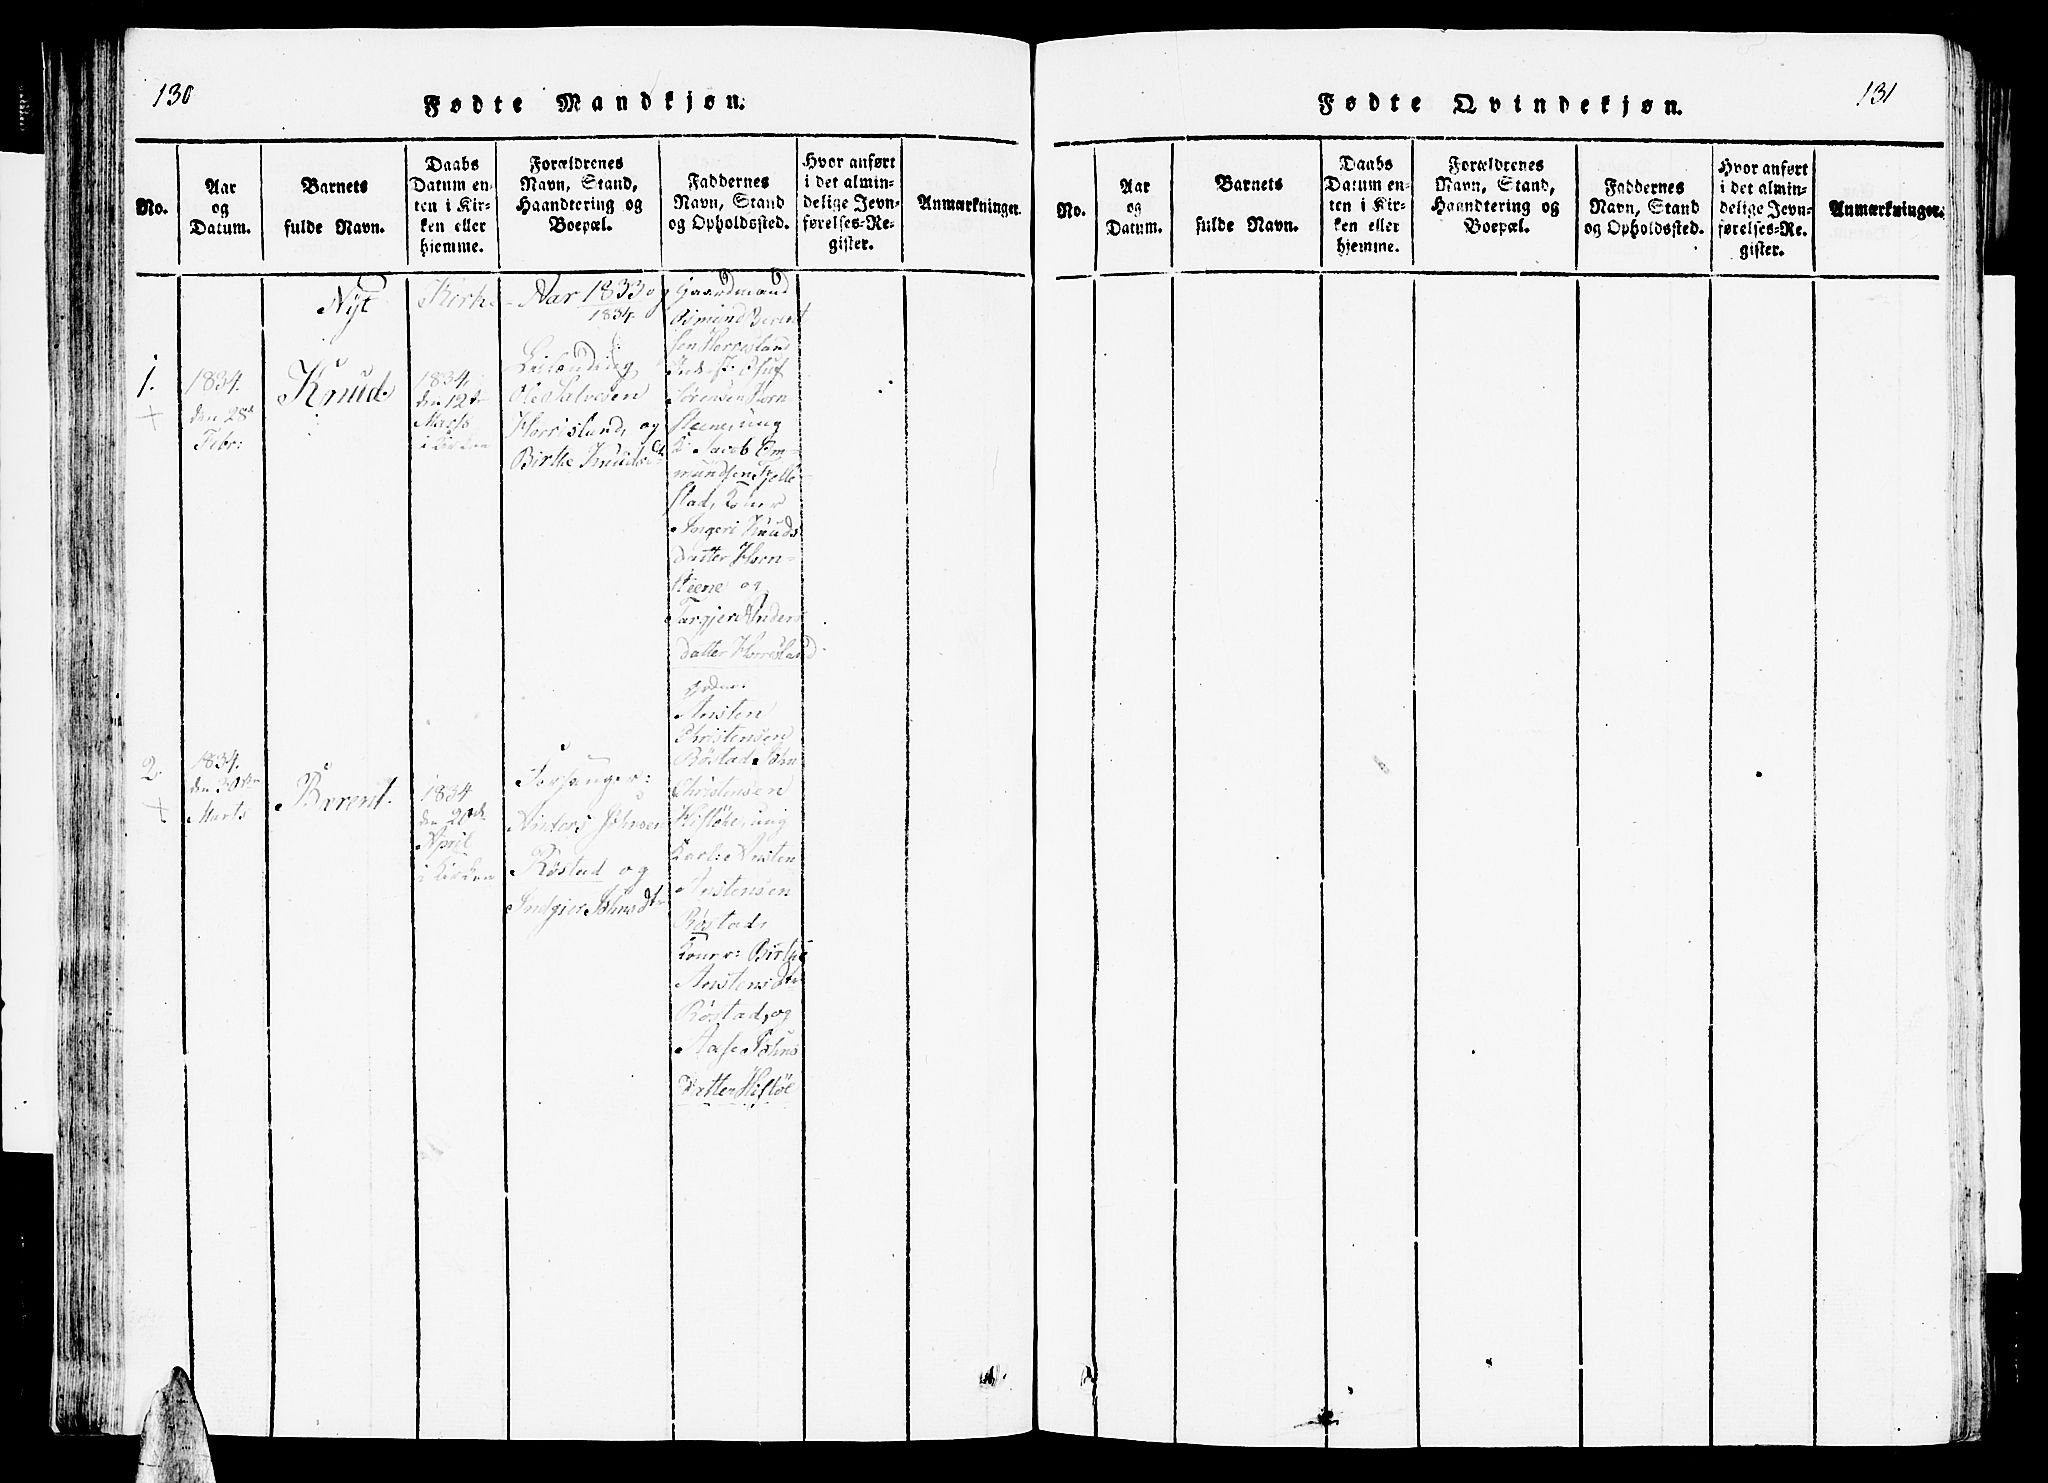 130
Fødte Mandkjøn.
No.
Aar
og
Datum.
Barnets
fulde Navn.
Daabs
Datum en-
ten i Kir-
ken eller
hjemme.
Forældrenes
Navn, Stand,
Haandtering og
Boepæl.
Faddernes
Navn, Stand
og Opholdssted.
Hvor anført
i det almin-
delige Jevn-
førelses-Re-
gister.
Anmærkninger.
Nyt Kirke-Aar 1833 og
1834.
1.
1834.
den 28de
Febr:
Knud.
1834.
den 12te
Marts
i Kirken
Ole Salvesen
Horrisland, og
Birthe Knudsdtr
Gaardmænd
Osmund Berent
sen Horrisland
Oluf
Sørensen Horn
steene, ung
K. Jacob Em-
mundsen Fjelle-
stad, Koner
Angeri Knuds
datter Horn-
steene og
Targjer Anders
datter Horrisland
2.
1834.
den 30te
Marts
Berent.
1834
den 20de
April
i Kirken
Forsanger:
Anders Johnsen
Røstad og
Indgier Johnsdtr
Austen
Christensen
Røstad, John
Christensen
Hisløe, ung
Karl: Austen
Austensen
Røstad,
Koner: Birthe
Austensdtr
Røstad, og
Aase Johns
Datter Hisløe
131
Fødte Qvindekjøn.
No.
Aar
og
Datum.
Barnets
fulde Navn.
Daabs
Datum en-
ten i Kir-
ken eller
hjemme.
Forældrenes
Navn, Stand,
Haandtering og
Boepæl.
Faddernes
Navn, Stand
og Opholdssted.
Hvor anført
i det almin-
delige Jevn-
førelses-Re-
gister.
Anmærkninger.